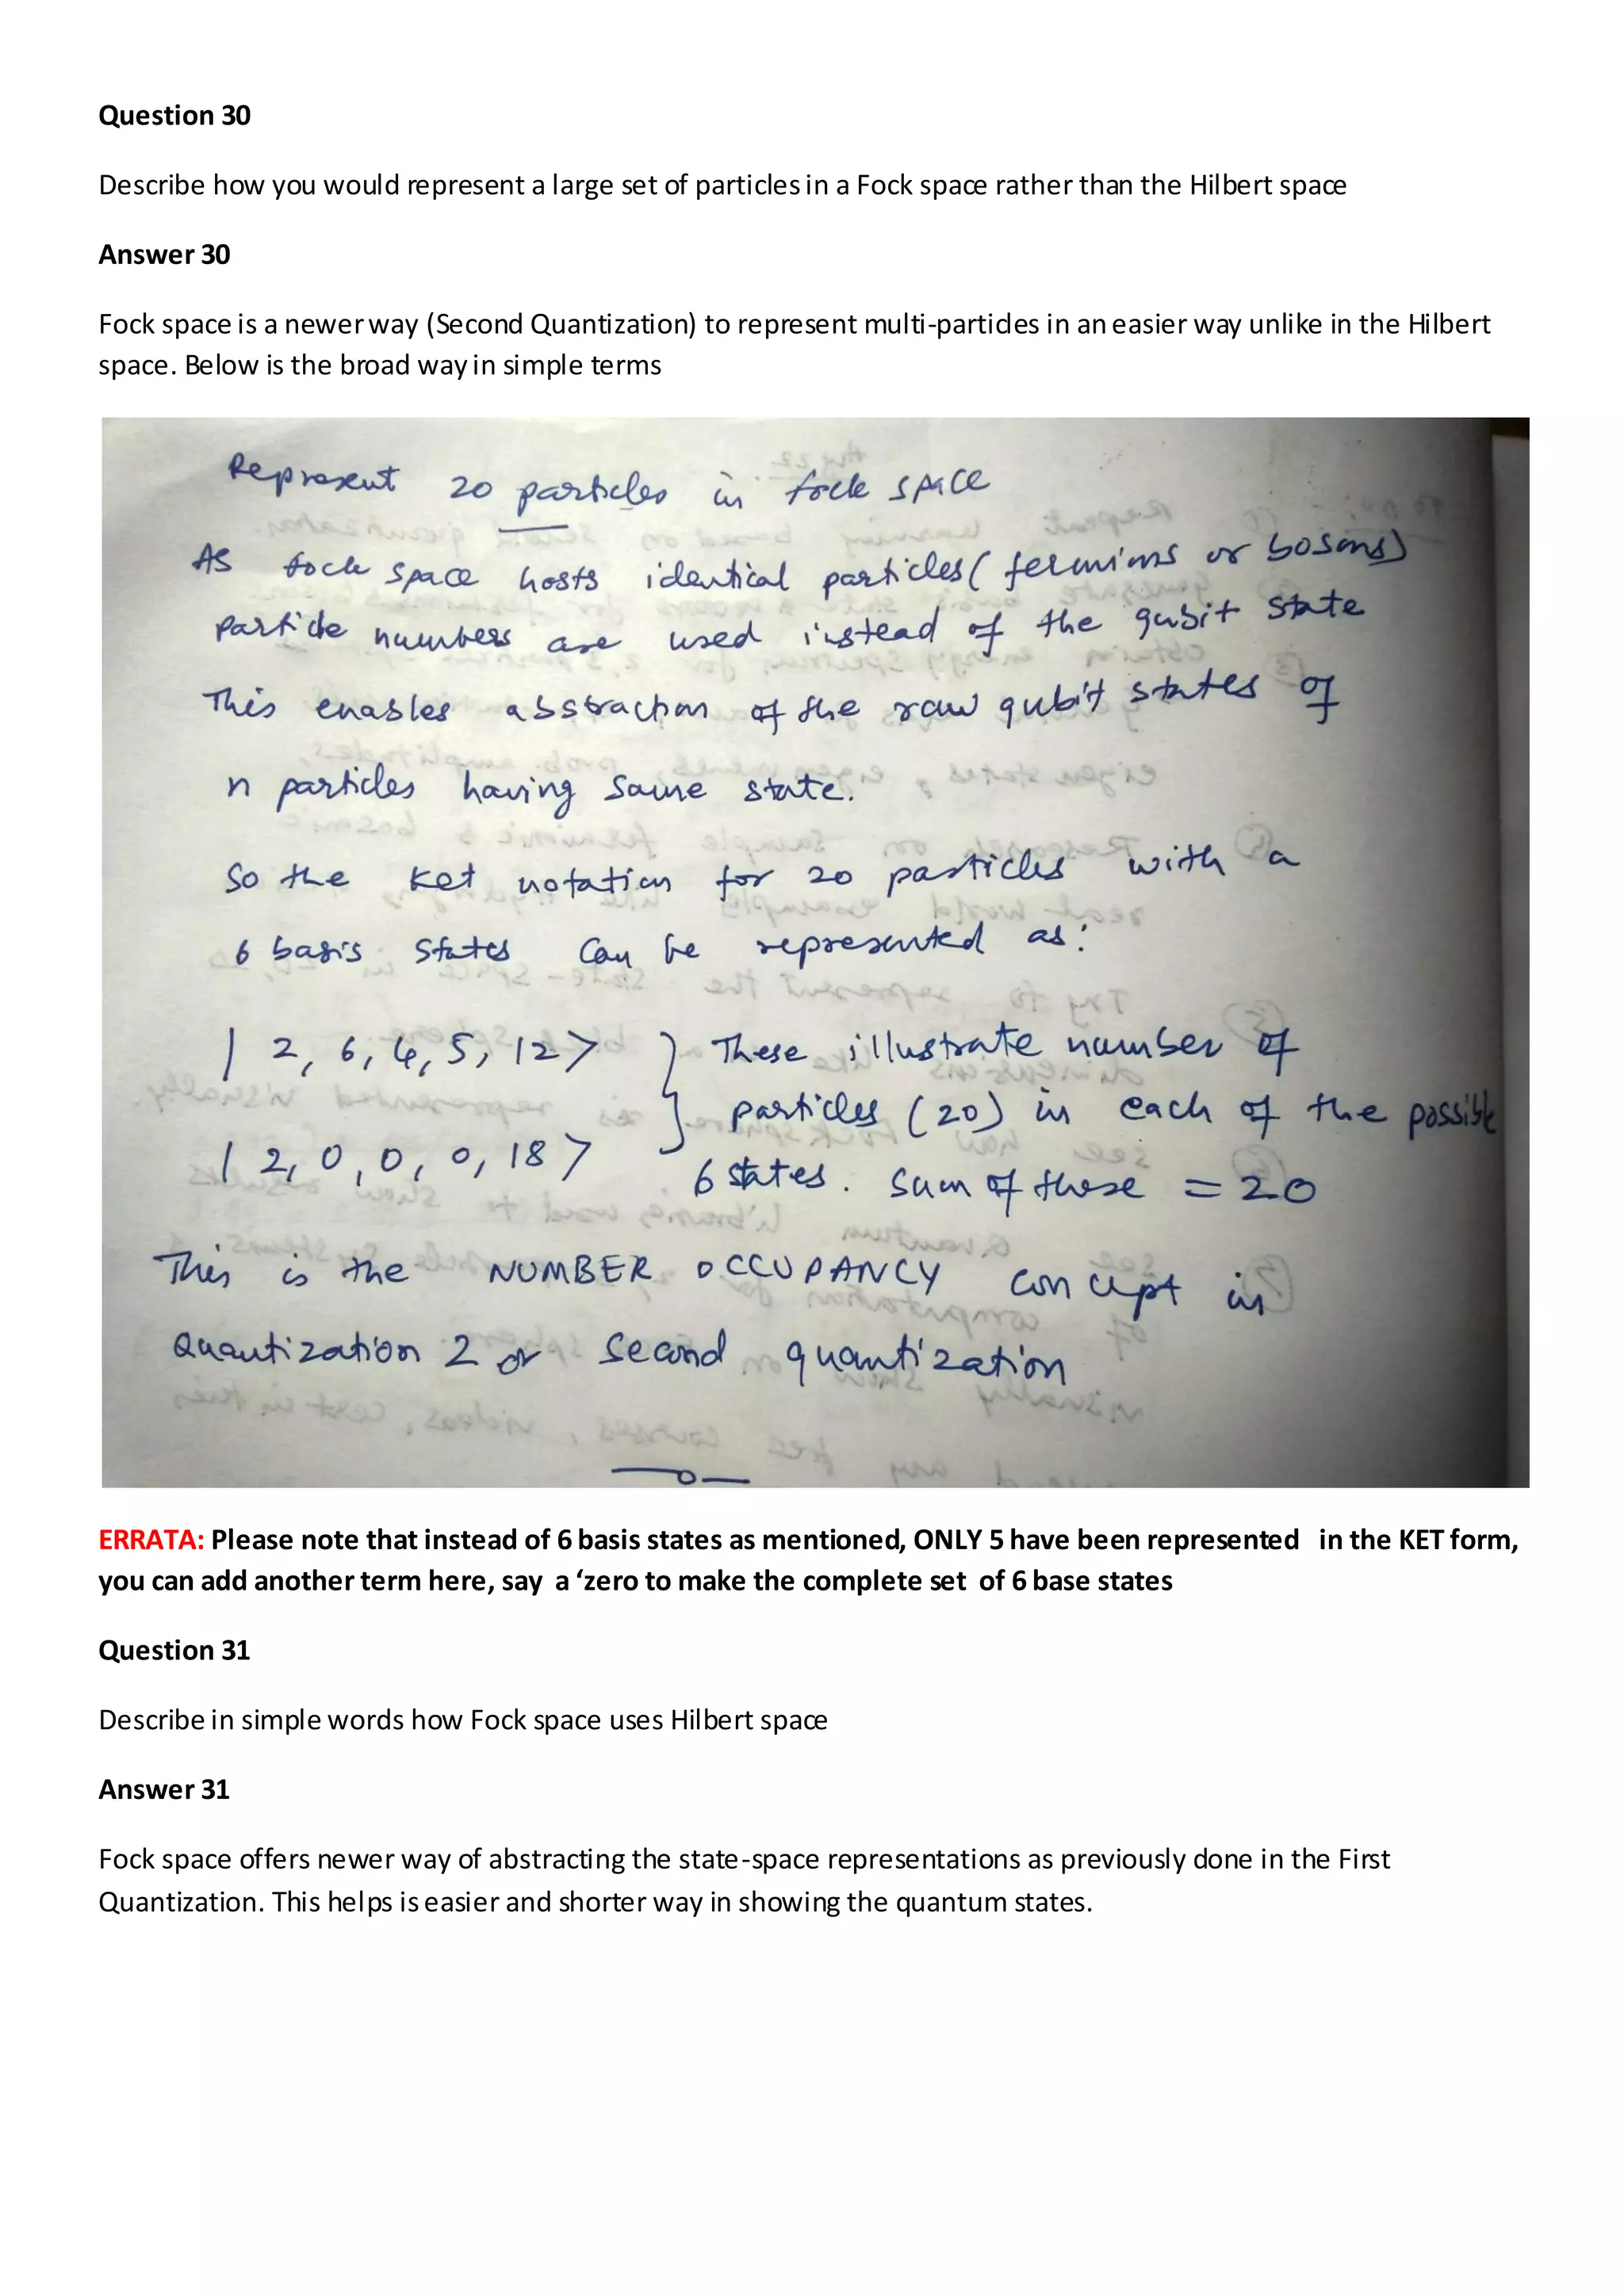 Question 30
Describe how you would represent a large set of particles in a Fock space rather than the Hilbert space
Answer 30
Fock space is a newer way (Second Quantization) to represent multi-particles in an easier way unlike in the Hilbert
space. Below is the broad way in simple terms
Represent 20 particles in fock space
As fock space hosts identical particles (fermions or bosons)
particle numbers are used instead of the qubit state
This enables abstraction of the raw qubit states of
n particles having same state.
So the ket notation for 20 particles with a
6 basis states can be represented as:
| 2, 6, 6, 5, 12> } These illustrate number of
particles (20) in each of the possible
| 2, 0, 0, 0, 18>
6 states. Sum of these = 20
This is the NUMBER OCCUPANCY concept in
Quantization 2 or second quantization
ERRATA: Please note that instead of 6 basis states as mentioned, ONLY 5 have been represented in the KET form,
you can add another term here, say a ‘zero to make the complete set of 6 base states
Question 31
Describe in simple words how Fock space uses Hilbert space
Answer 31
Fock space offers newer way of abstracting the state-space representations as previously done in the First
Quantization. This helps is easier and shorter way in showing the quantum states.